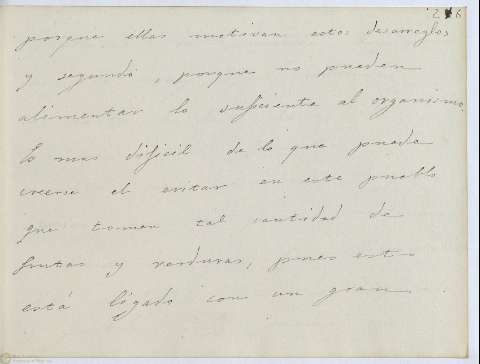 porque ellas motivan estos desarreglos
y segundo, porque no pueden
alimentar lo suficiente al organismo.
Lo mas dificil de lo que puede
creerse el evitar en este pueblo
que tomen tal cantidad de
frutas y verduras, pues esto
está ligado con un gran